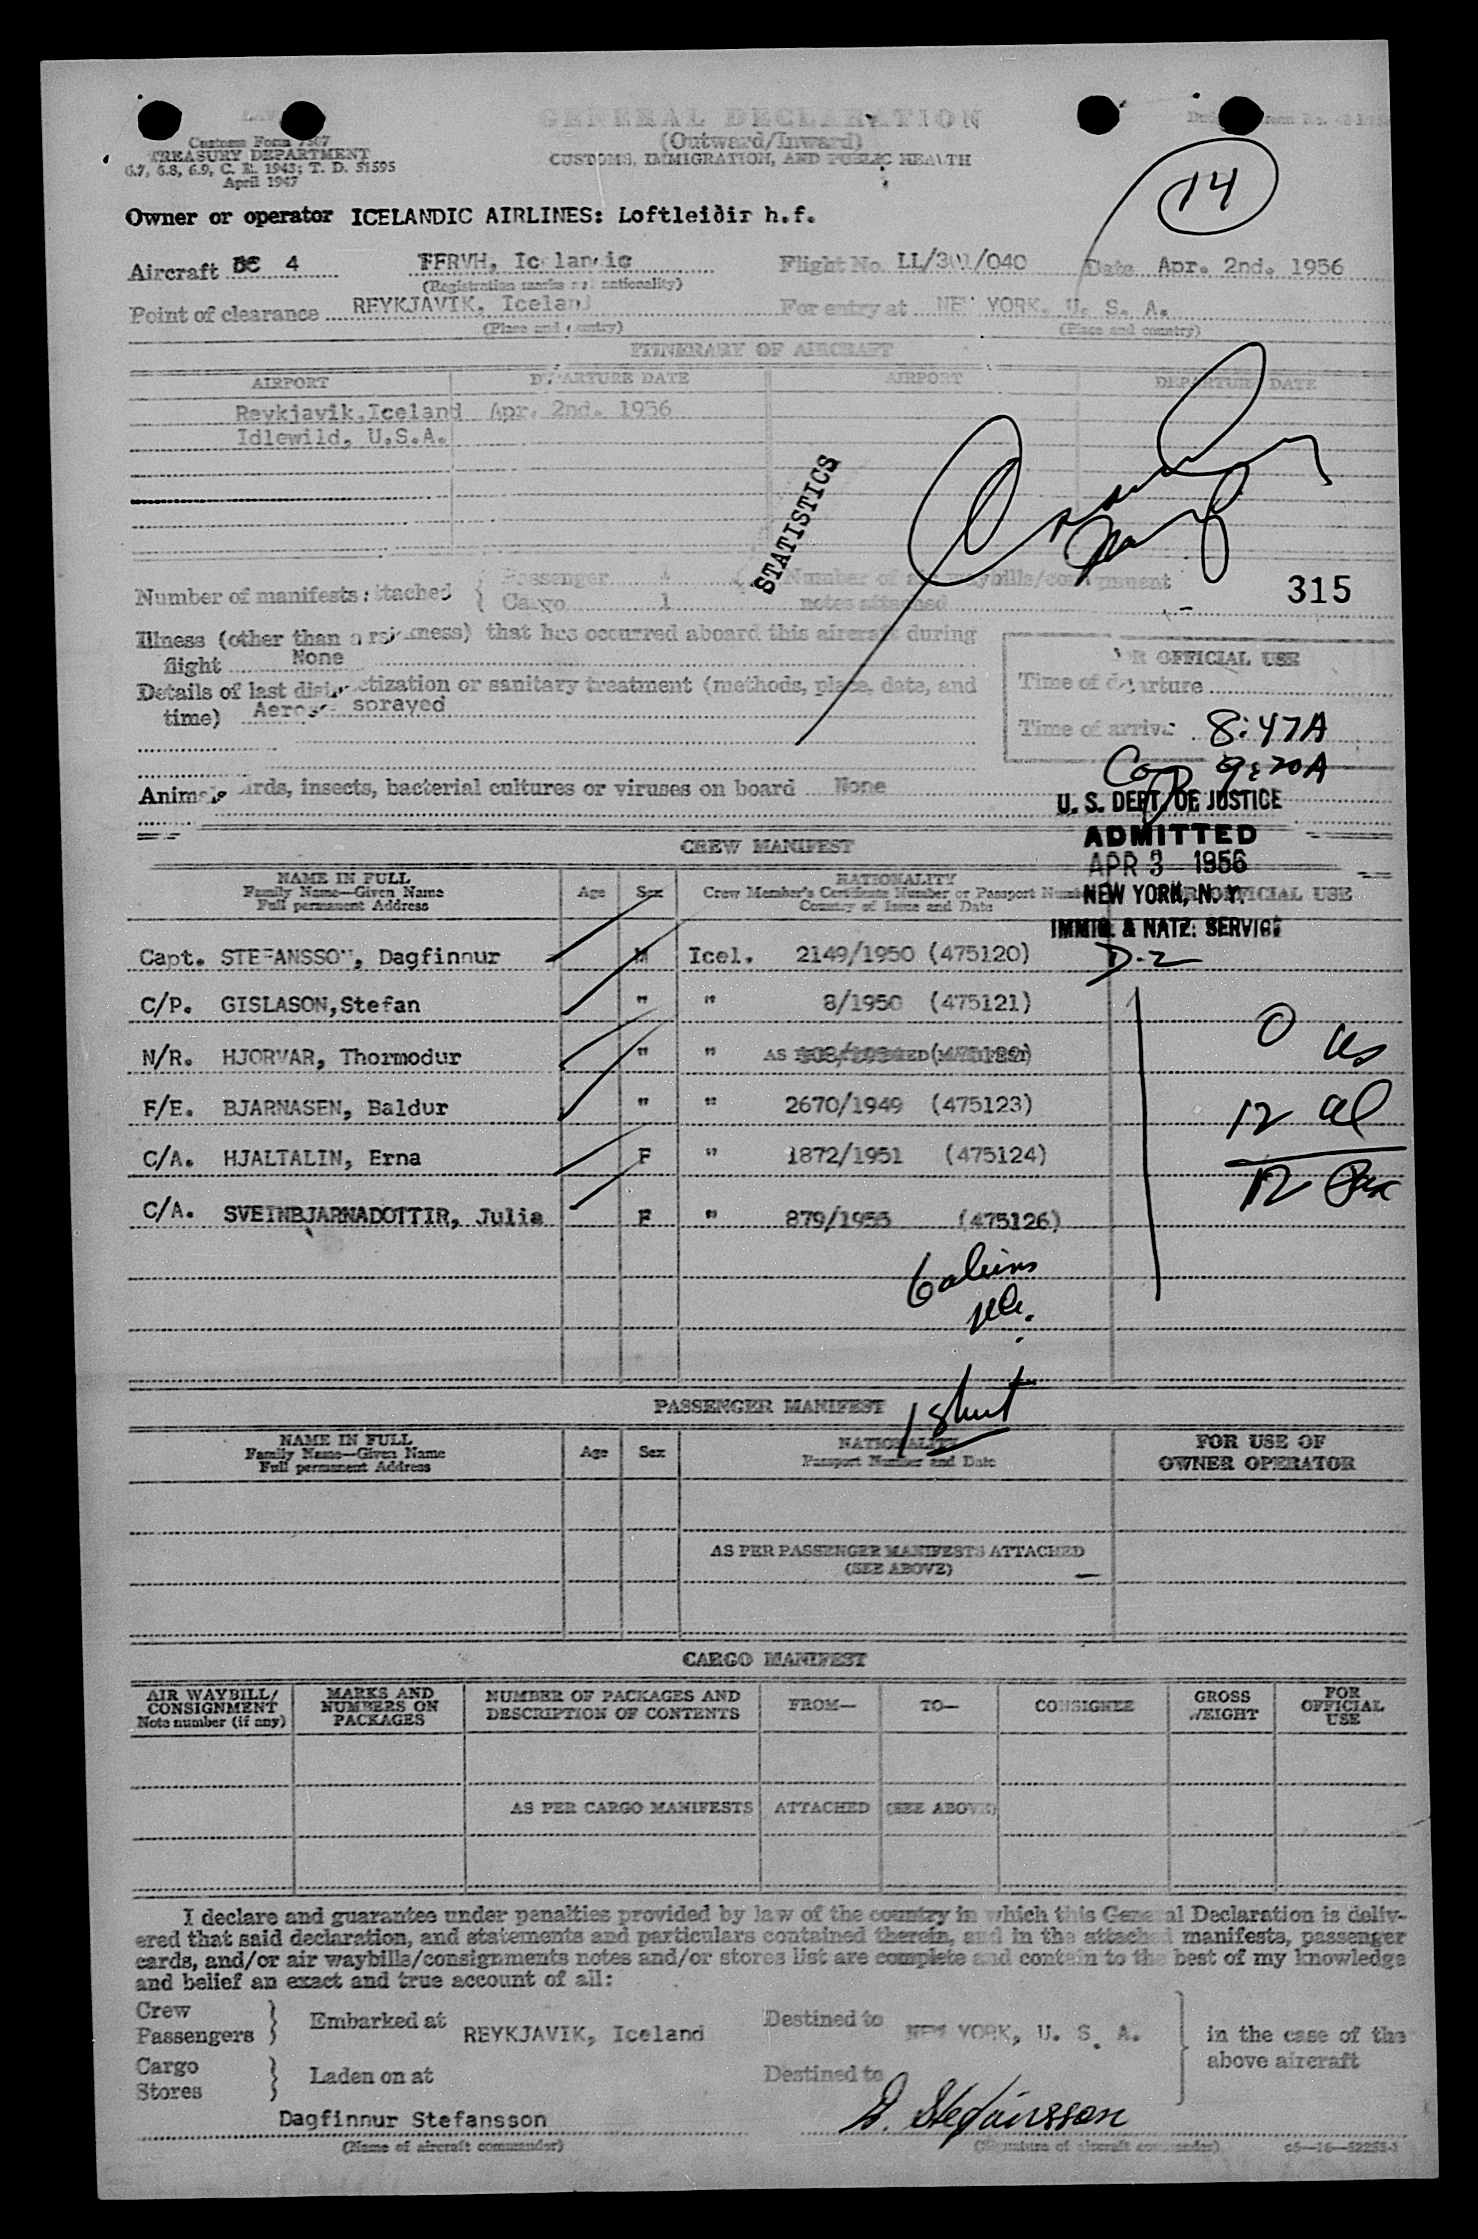 GENERAL DECLARATION
(Outward/Inward)
CUSTOMS, IMMIGRATION, AND PUBLIC HEALTH
Customs Form 7507
TREASURY DEPARTMENT
6.7, 6.8, 6.9, C. R. 1943; T. D. 51595
April 1947
14
Owner or operator ICELANDIC AIRLINES: Loftleiðir h.f.
Aircraft DC 4 Icelandic Flight No. LL/301/040 Date Apr. 2nd. 1956
(Registration marks and nationality)
Point of clearance REYKJAVIK, Iceland For entry at NEW YORK, U. S. A.
(Place and country) (Place and country)
ITINERARY OF AIRCRAFT
AIRPORT DEPARTURE DATE AIRPORT DEPARTURE DATE
Reykjavik, Iceland Apr. 2nd. 1956
Idlewild, U.S.A.
STATISTICS
Number of manifests attached { Passenger Number of air waybills/consignment
Cargo 1 notes attached
315
Illness (other than airsickness) that has occurred aboard this aircraft during
flight None
Details of last disinsectization or sanitary treatment (methods, place, date, and
time) Aerosol sprayed
FOR OFFICIAL USE
Time of departure
Time of arrival 8:47A
9:20A
Animals, birds, insects, bacterial cultures or viruses on board None
U. S. DEPT. OF JUSTICE
ADMITTED
APR 3 1956
NEW YORK, N. Y.
IMMIG. & NATZ. SERVICE
D-2
CREW MANIFEST
NAME IN FULL
Family Name—Given Name
Full permanent Address
Age Sex
NATIONALITY
Crew Member's Certificate Number or Passport Number
Country of Issue and Date
FOR OFFICIAL USE
Capt. STEFANSSON, Dagfinnur M Icel. 2149/1950 (475120)
C/P. GISLASON, Stefan " " 8/1950 (475121)
N/R. HJORVAR, Thormodur " "
F/E. BJARNASEN, Baldur " " 2670/1949 (475123)
C/A. HJALTALIN, Erna F " 1872/1951 (475124)
C/A. SVEINBJARNADOTTIR, Julia F " 879/1955 (475126)
0 us
12 al
12 Pax
6 aliens
PASSENGER MANIFEST
NAME IN FULL
Family Name—Given Name
Full permanent Address
Age Sex
NATIONALITY
Passport Number and Date
FOR USE OF
OWNER OPERATOR
AS PER PASSENGER MANIFESTS ATTACHED
(SEE ABOVE)
CARGO MANIFEST
AIR WAYBILL/
CONSIGNMENT
Note number (if any)
MARKS AND
NUMBERS ON
PACKAGES
NUMBER OF PACKAGES AND
DESCRIPTION OF CONTENTS
FROM—
TO—
CONSIGNEE
GROSS
WEIGHT
FOR
OFFICIAL
USE
AS PER CARGO MANIFESTS ATTACHED (SEE ABOVE)
I declare and guarantee under penalties provided by law of the country in which this General Declaration is deliv-
ered that said declaration, and statements and particulars contained therein, and in the attached manifests, passenger
cards, and/or air waybills/consignments notes and/or stores list are complete and contain to the best of my knowledge
and belief an exact and true account of all:
Crew
Passengers } Embarked at REYKJAVIK, Iceland Destined to NEW YORK, U. S. A. } in the case of the
above aircraft
Cargo
Stores } Laden on at Destined to
Dagfinnur Stefansson D. Stefánsson
(Name of aircraft commander) (Signature of aircraft commander) c5—16—52253-1